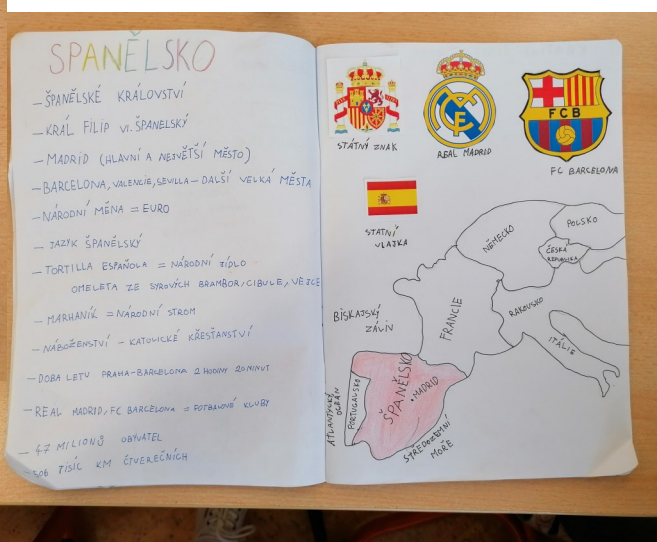 ŠPANĚLSKO
- ŠPANĚLSKÉ KRÁLOVSTVÍ
- KRÁL FILIP VI. ŠPANĚLSKÝ
- MADRID (HLAVNÍ A NEJVĚTŠÍ MĚSTO)
- BARCELONA, VALENCIE, SEVILLA - DALŠÍ VELKÁ MĚSTA
- NÁRODNÍ MĚNA = EURO
- JAZYK ŠPANĚLSKÝ
- TORTILLA ESPAÑOLA = NÁRODNÍ JÍDLO
OMELETA ZE SYROVÝCH BRAMBOR, CIBULE, VEJCE
- MARHANÍK = NÁRODNÍ STROM
- NÁBOŽENSTVÍ - KATOLICKÉ KŘESŤANSTVÍ
- DOBA LETU PRAHA-BARCELONA 2 HODINY 20 MINUT
- REAL MADRID, FC BARCELONA = FOTBALOVÉ KLUBY
- 47 MILIONŮ OBYVATEL
- 506 TISÍC KM ČTVEREČNÍCH
STÁTNÝ ZNAK
REAL MADRID
FCB
FC BARCELONA
STATNÍ
VLAJKA
NĚMECKO
POLSKO
ČESKÁ
REPUBLIKA
BISKAJSKÝ
ZÁLIV
FRANCIE
RAKOUSKO
ITÁLIE
ATLANTICKÝ
OCEÁN
PORTUGALSKO
ŠPANĚLSKO
MADRID
STŘEDOZEMNÍ
MOŘE